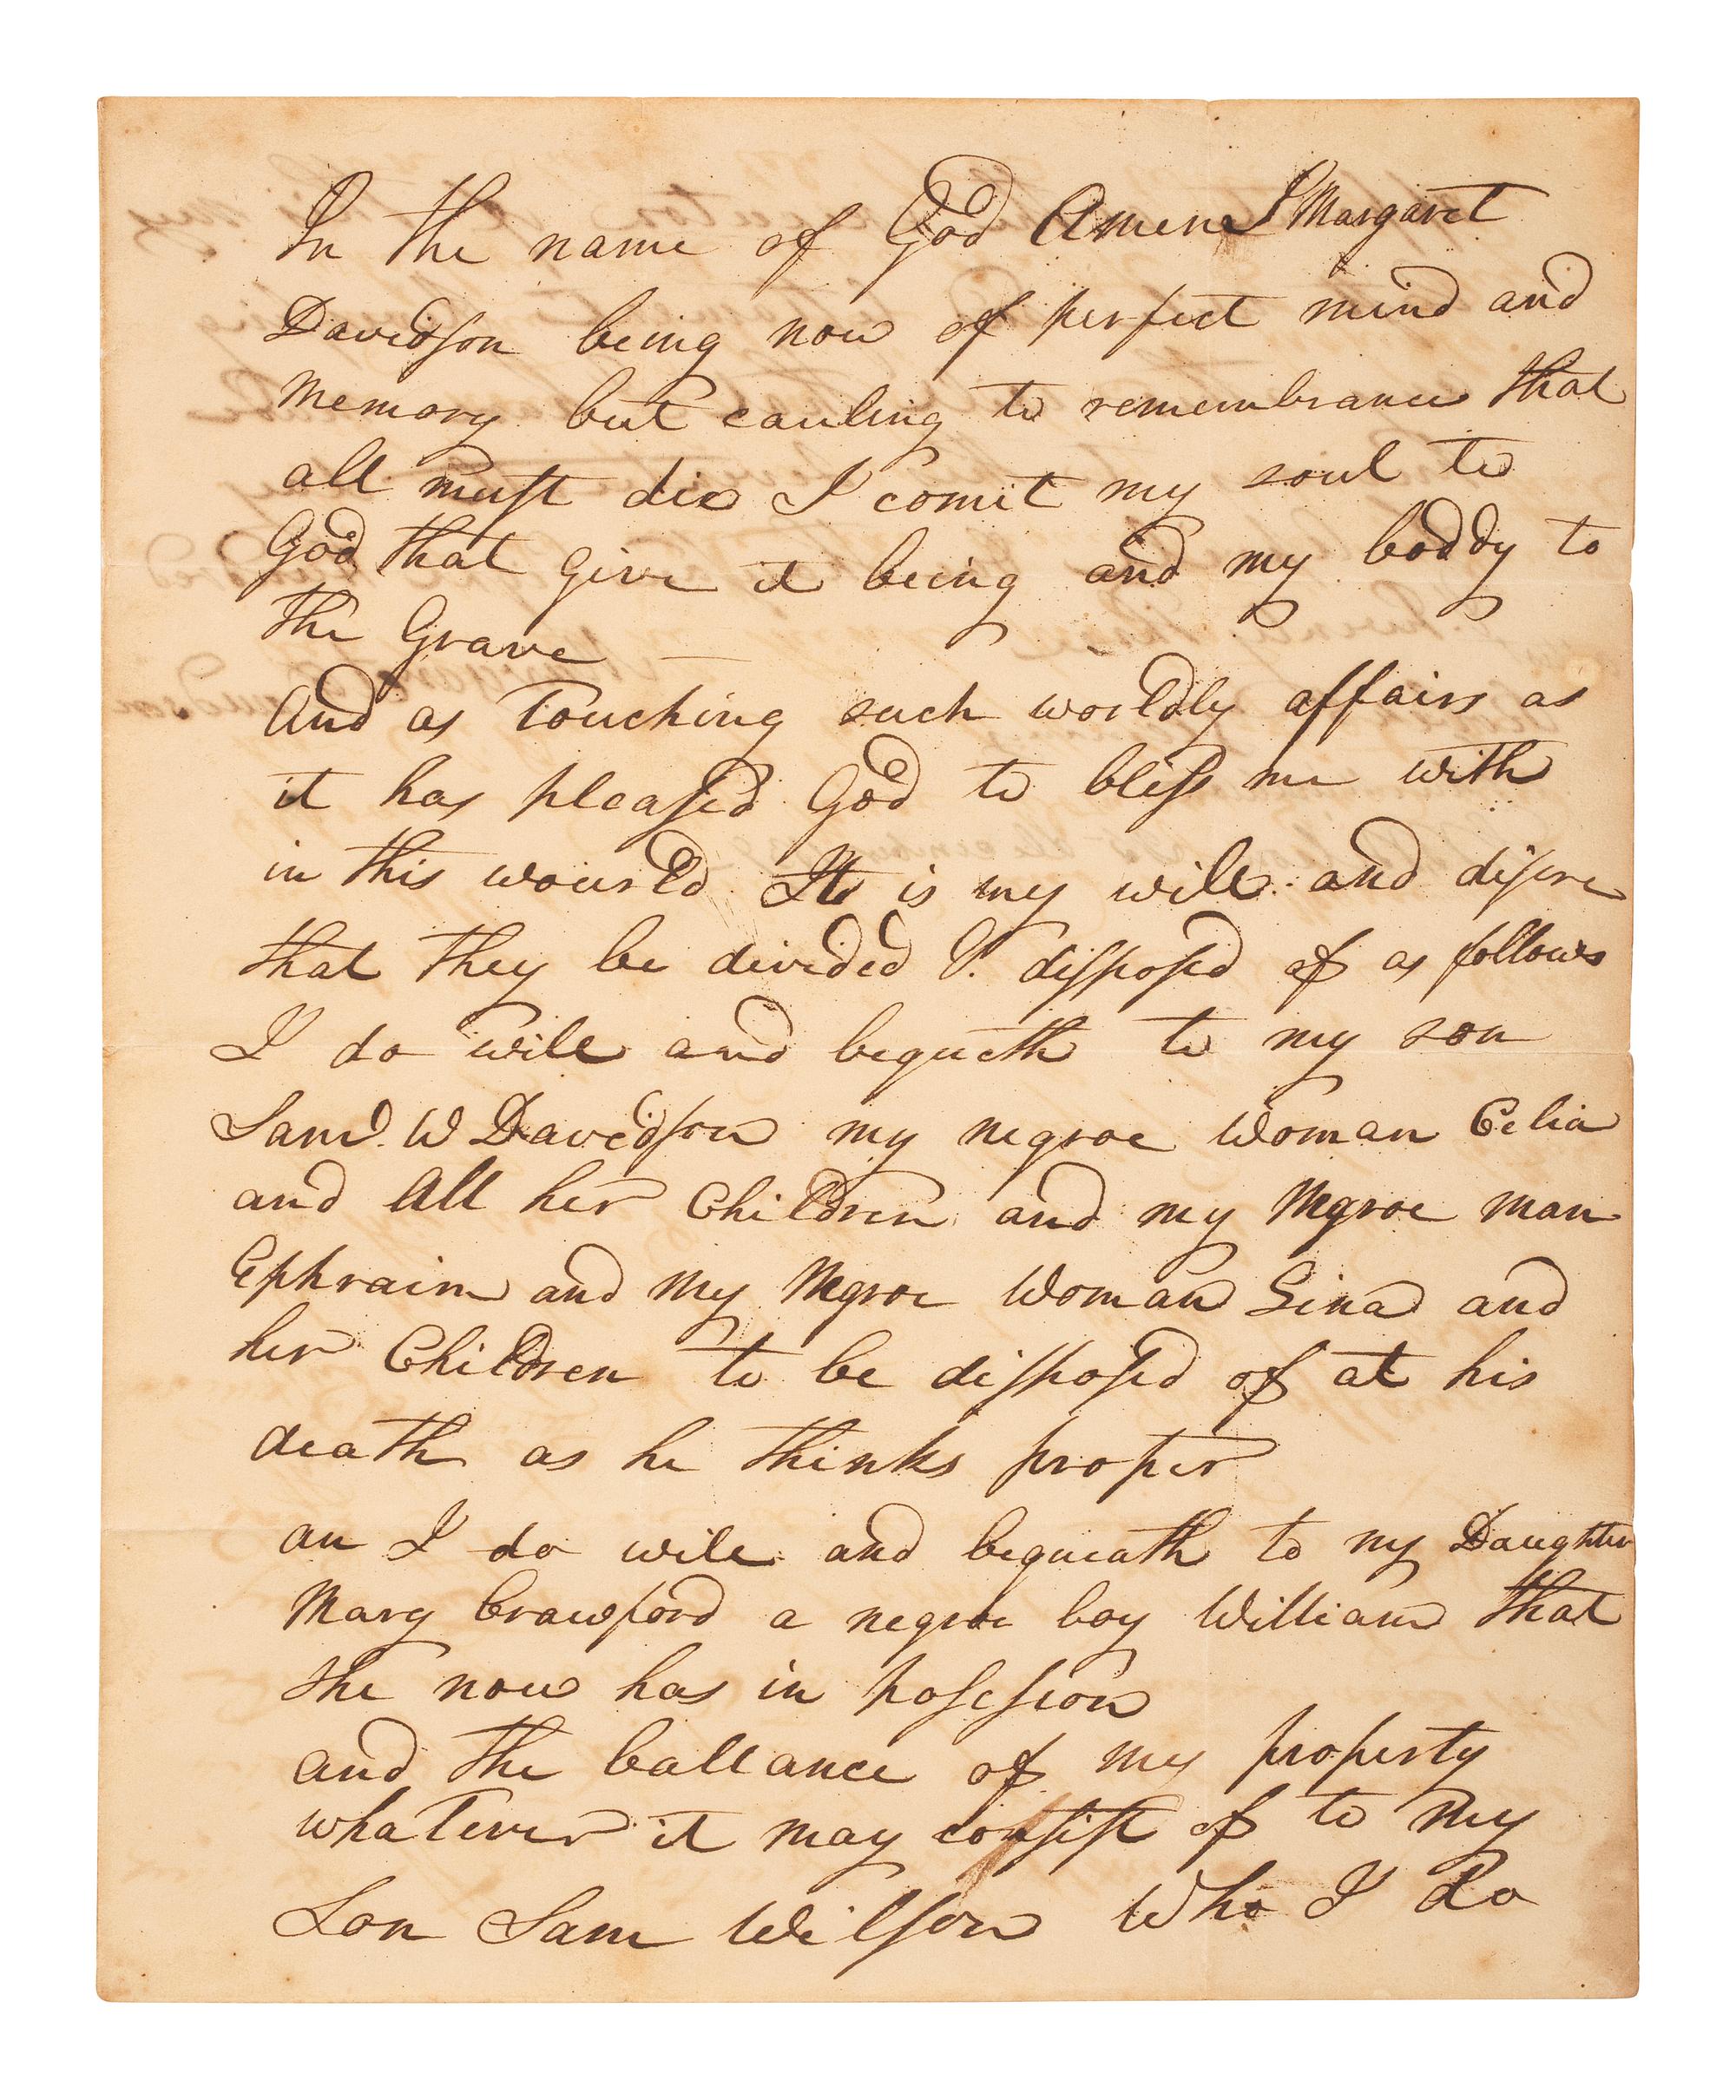 In the name of God Amen I Margaret
Davidson being now of perfect mind and
memory but cauling to remembrance that
all must die I comit my soul to
God that give it being and my boddy to
the Grave
And as Touching such worldly affairs as
it has pleased God to bless me with
in this wourld It is my will and disire
that they be divided & disposed of as follows
I do will and bequeth to my son
Saml. W Davidson my negroe Woman Celia
and All her Children and my Negroe man
Ephraim and my Negroe Woman Sina and
her Children to be disposed of at his
death as he thinks proper
an I do will and bequeath to my Daughter
Mary Crawford a negroe boy William that
she now has in posession
and the ballance of my property
whatever it may consist of to my
Son Sam Wilson Who I do